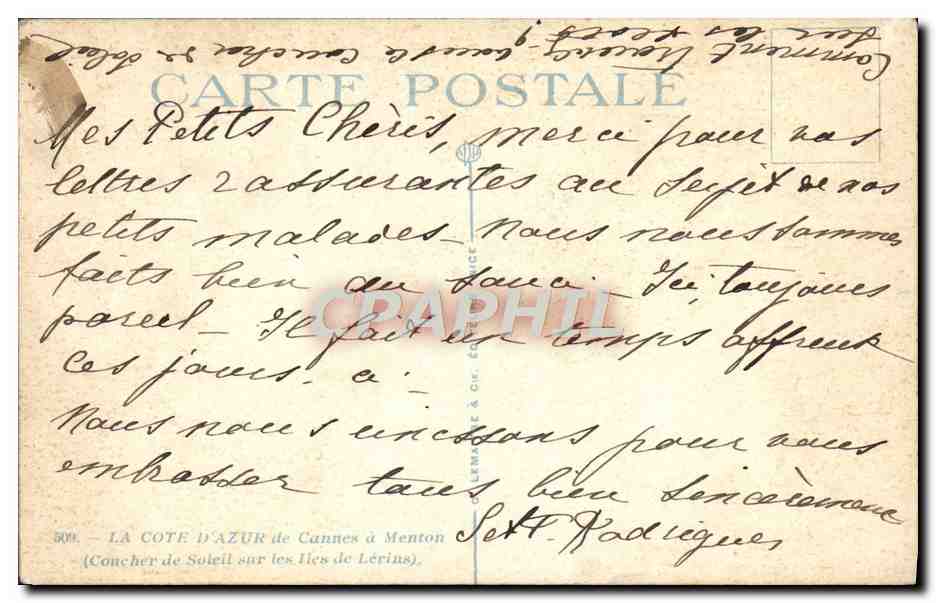 Comment trouvez-vous le coucher de soleil
sur les
CARTE POSTALE
Mes Petits Chèris, merci pour vos
lettres rassurantes au sujet de nos
petits malades - Nous nous sommes
faits bien du souci - Ici, toujours
pareil - Il fait un temps affreux
ces jours. ci -
Nous nous unissons pour vous
embrasser tous bien sincèrement
Set F. Rodrigues
LEMA & Cie, ÉDIT ICE
CPAPHIL
509. - LA COTE D'AZUR de Cannes à Menton
(Coucher de Soleil sur les Iles de Lérins).